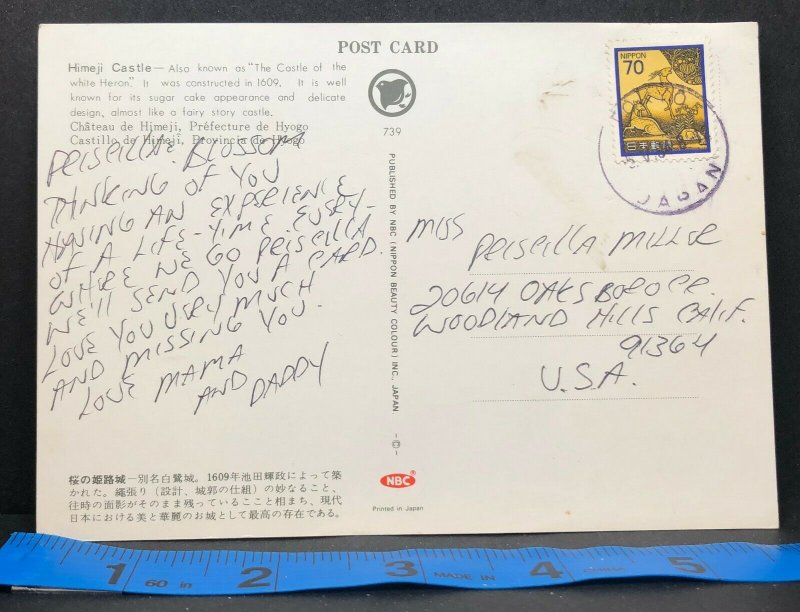 POST CARD
Himeji Castle — Also known as "The Castle of the
white Heron". It was constructed in 1609. It is well
known for its sugar cake appearance and delicate
design, almost like a fairy story castle.
Château de Himeji, Préfecture de Hyogo
Castillo de Himeji, Provincia de Hyogo
739
PRISCILLA BLOSSOM
THINKING OF YOU
HAVING AN EXPERIENCE
OF A LIFE-TIME. EVERY-
WHERE WE GO PRISCILLA
WE'LL SEND YOU A CARD.
LOVE YOU VERY MUCH
AND MISSING YOU.
LOVE MAMA
AND DADDY
桜の姫路城—別名白鷺城。1609年池田輝政によって築
かれた。縄張り(設計、城郭の仕組)の妙なること、
往時の面影がそのまま残っていることと相まち、現代
日本における美と華麗のお城として最高の存在である。
PUBLISHED BY NBC (NIPPON BEAUTY COLOUR) INC., JAPAN
NBC
Printed in Japan
NIPPON
70
日本郵便
JAPAN
MISS
PRISCILLA MILLER
20614 OAKSBORO CR.
WOODLAND HILLS CALIF.
91364
U.S.A.
1 60 in 2 3 MADE IN 4 5